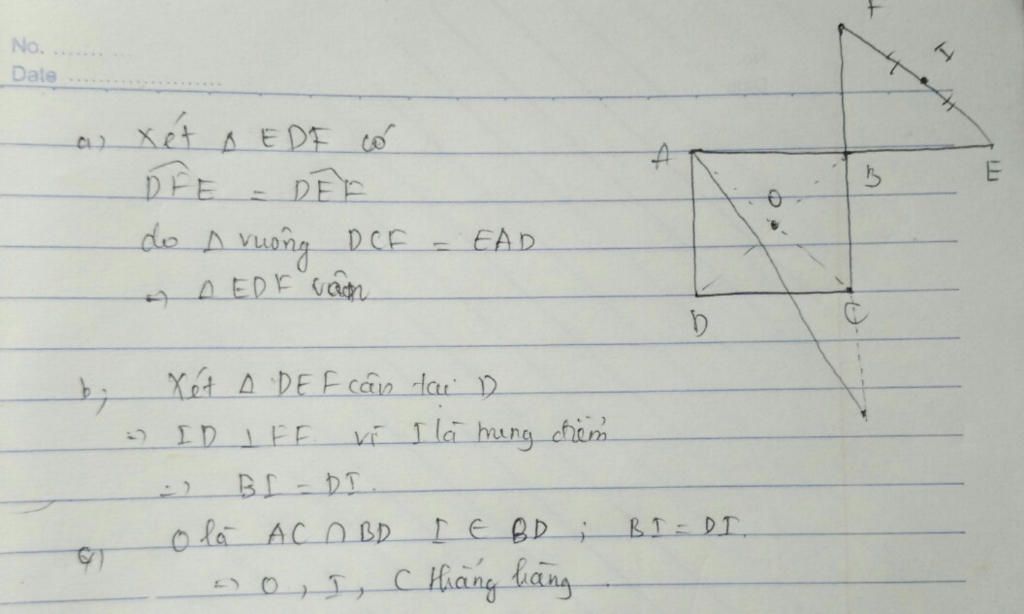 No. ........
Date ....................
a) Xét Δ EDF có
DFE = DEF
do Δ vuông DCF = EAD
=> Δ EDF
b; Xét Δ DEF cân tại D
=> ID ⊥ FF vì I là trung điểm
=> BI = DI.
c) O là AC ∩ BD I ∈ BD ; BI = DI.
=> O, I, C thẳng hàng.
F
I
A
B
E
O
D
C